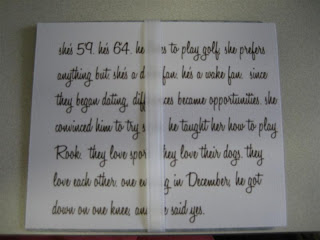 she's 59. he's 64. he to play golf. she prefers
anything but. she's a fan. he's a wake fan. since
they began dating, became opportunities. she
convinced him to try he taught her how to play
Rook. they love they love their dogs. they
love each other. one in December, he got
down on one knee, said yes.